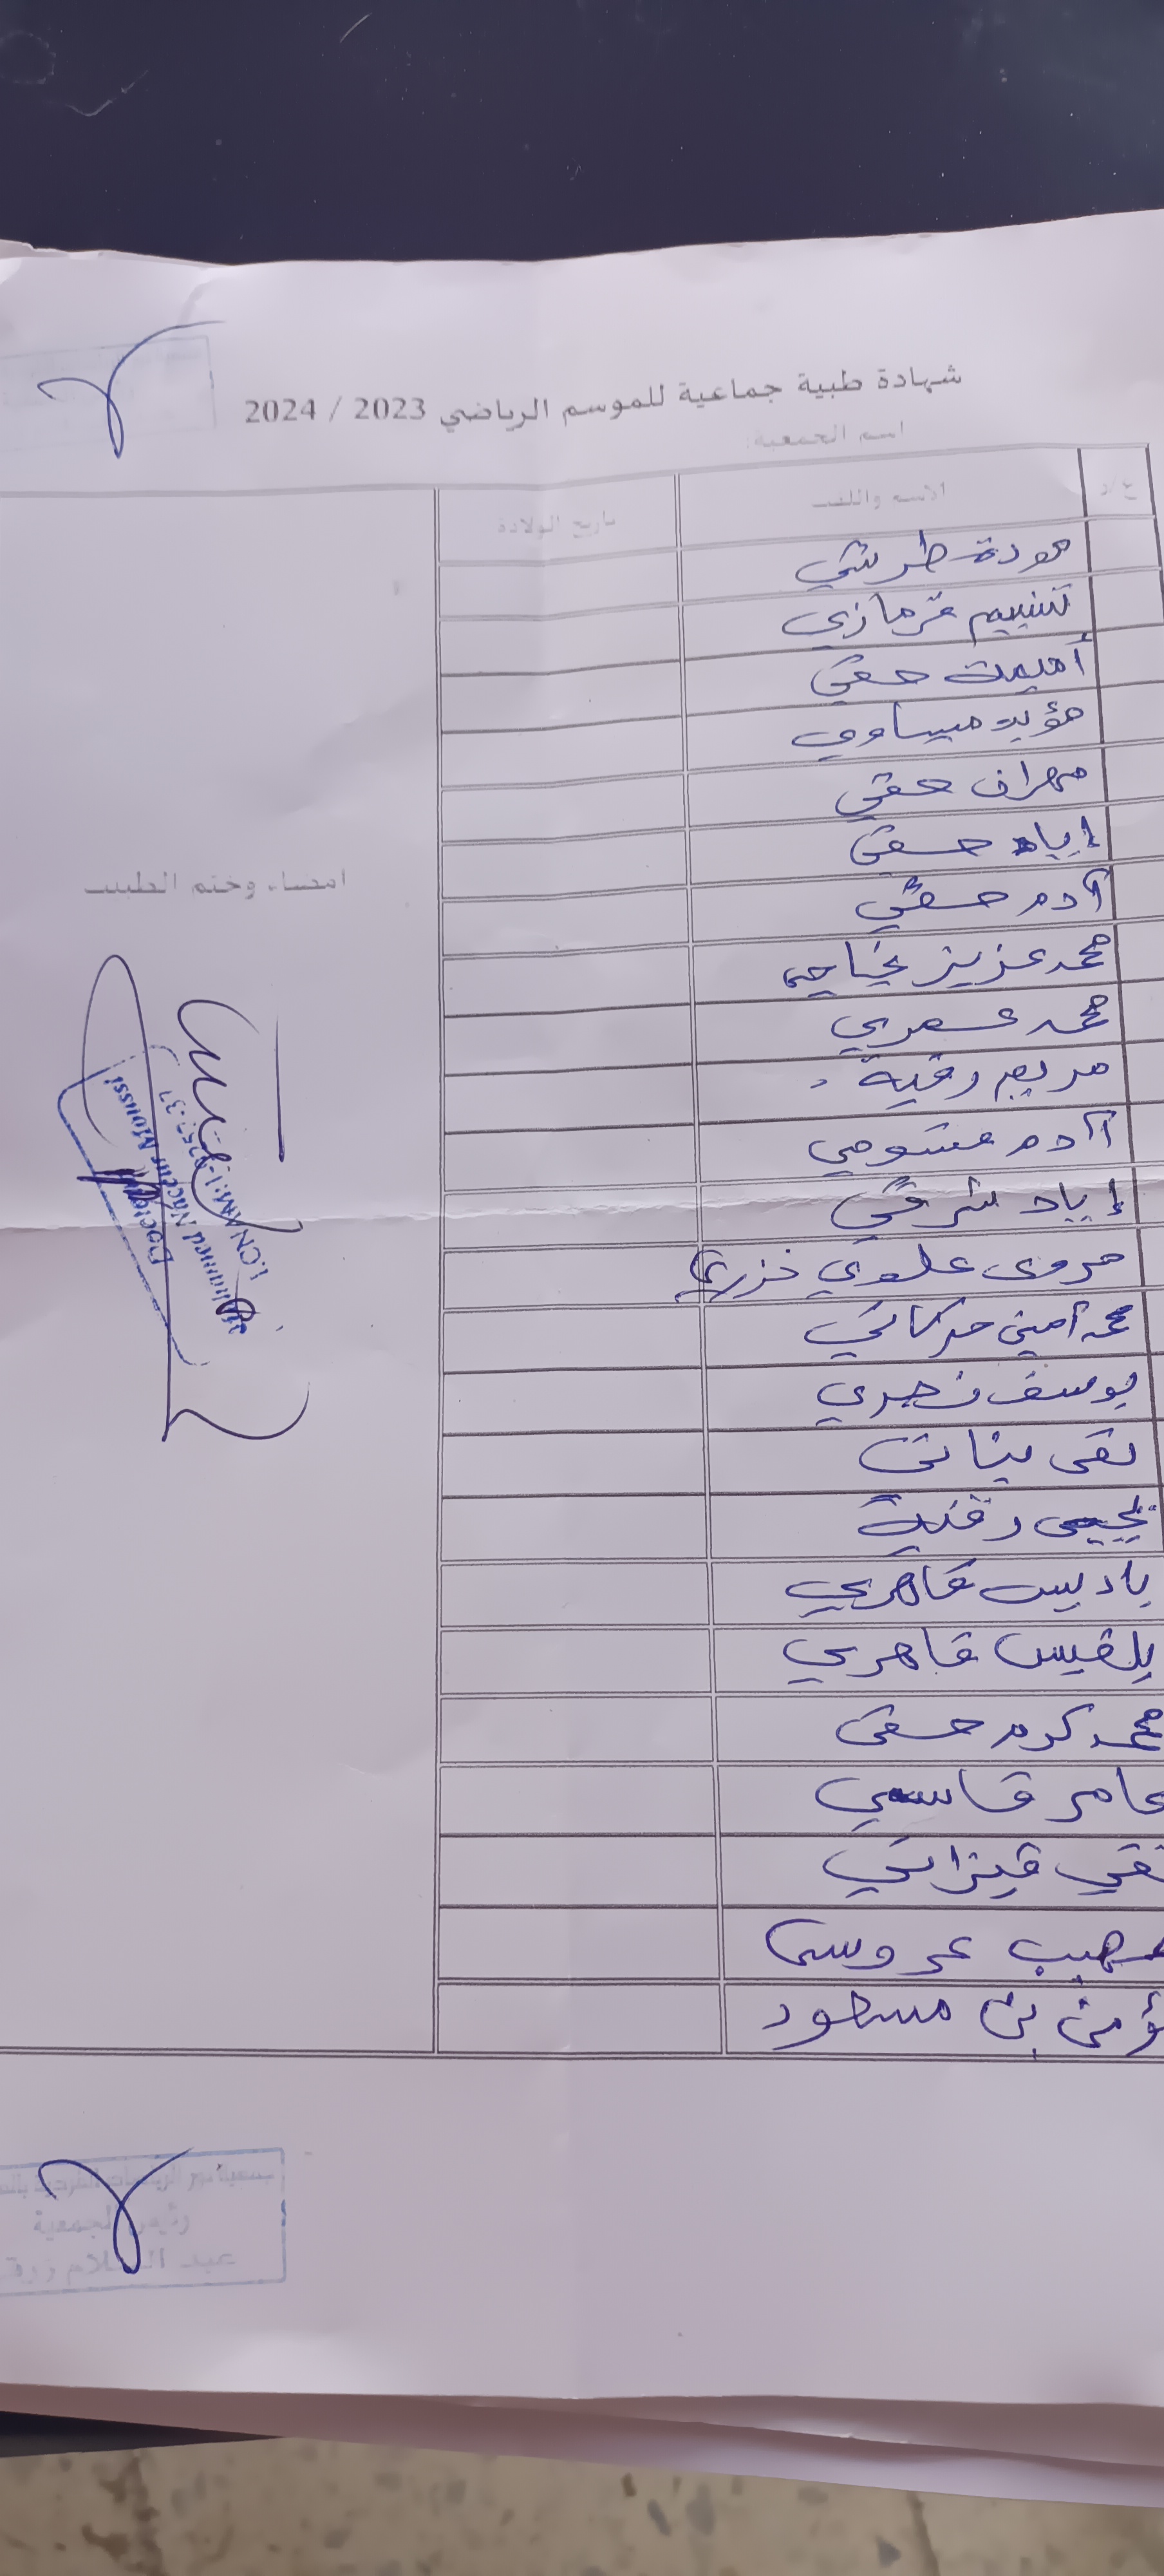 شهادة طبية جماعية للموسم الرياضي 2023 / 2024
اسم الجمعية:
ع/د الاسم واللقب تاريخ الولادة
مودة طرشي
تسنيم قرمازي
أميمة حقي
مؤيد ميساوي
مهران حقي
إياد حقي
آدم حقي
محمد عزيز
محمد عمري
مريم رقية
آدم عيشومي
إياد شرقي
مروى علوي خزري
محمد أمين حركاتي
يوسف نصري
تقى بناني
يحيى رقية
باديس قاهري
بلقيس قاهري
محمد كرم حقي
عامر قاسمي
تقي قيزاني
صهيب عروسي
مؤمن بن مسعود
امضاء وختم الطبيب
Docteur
Mohamed Naceur Moussi
رئيس الجمعية